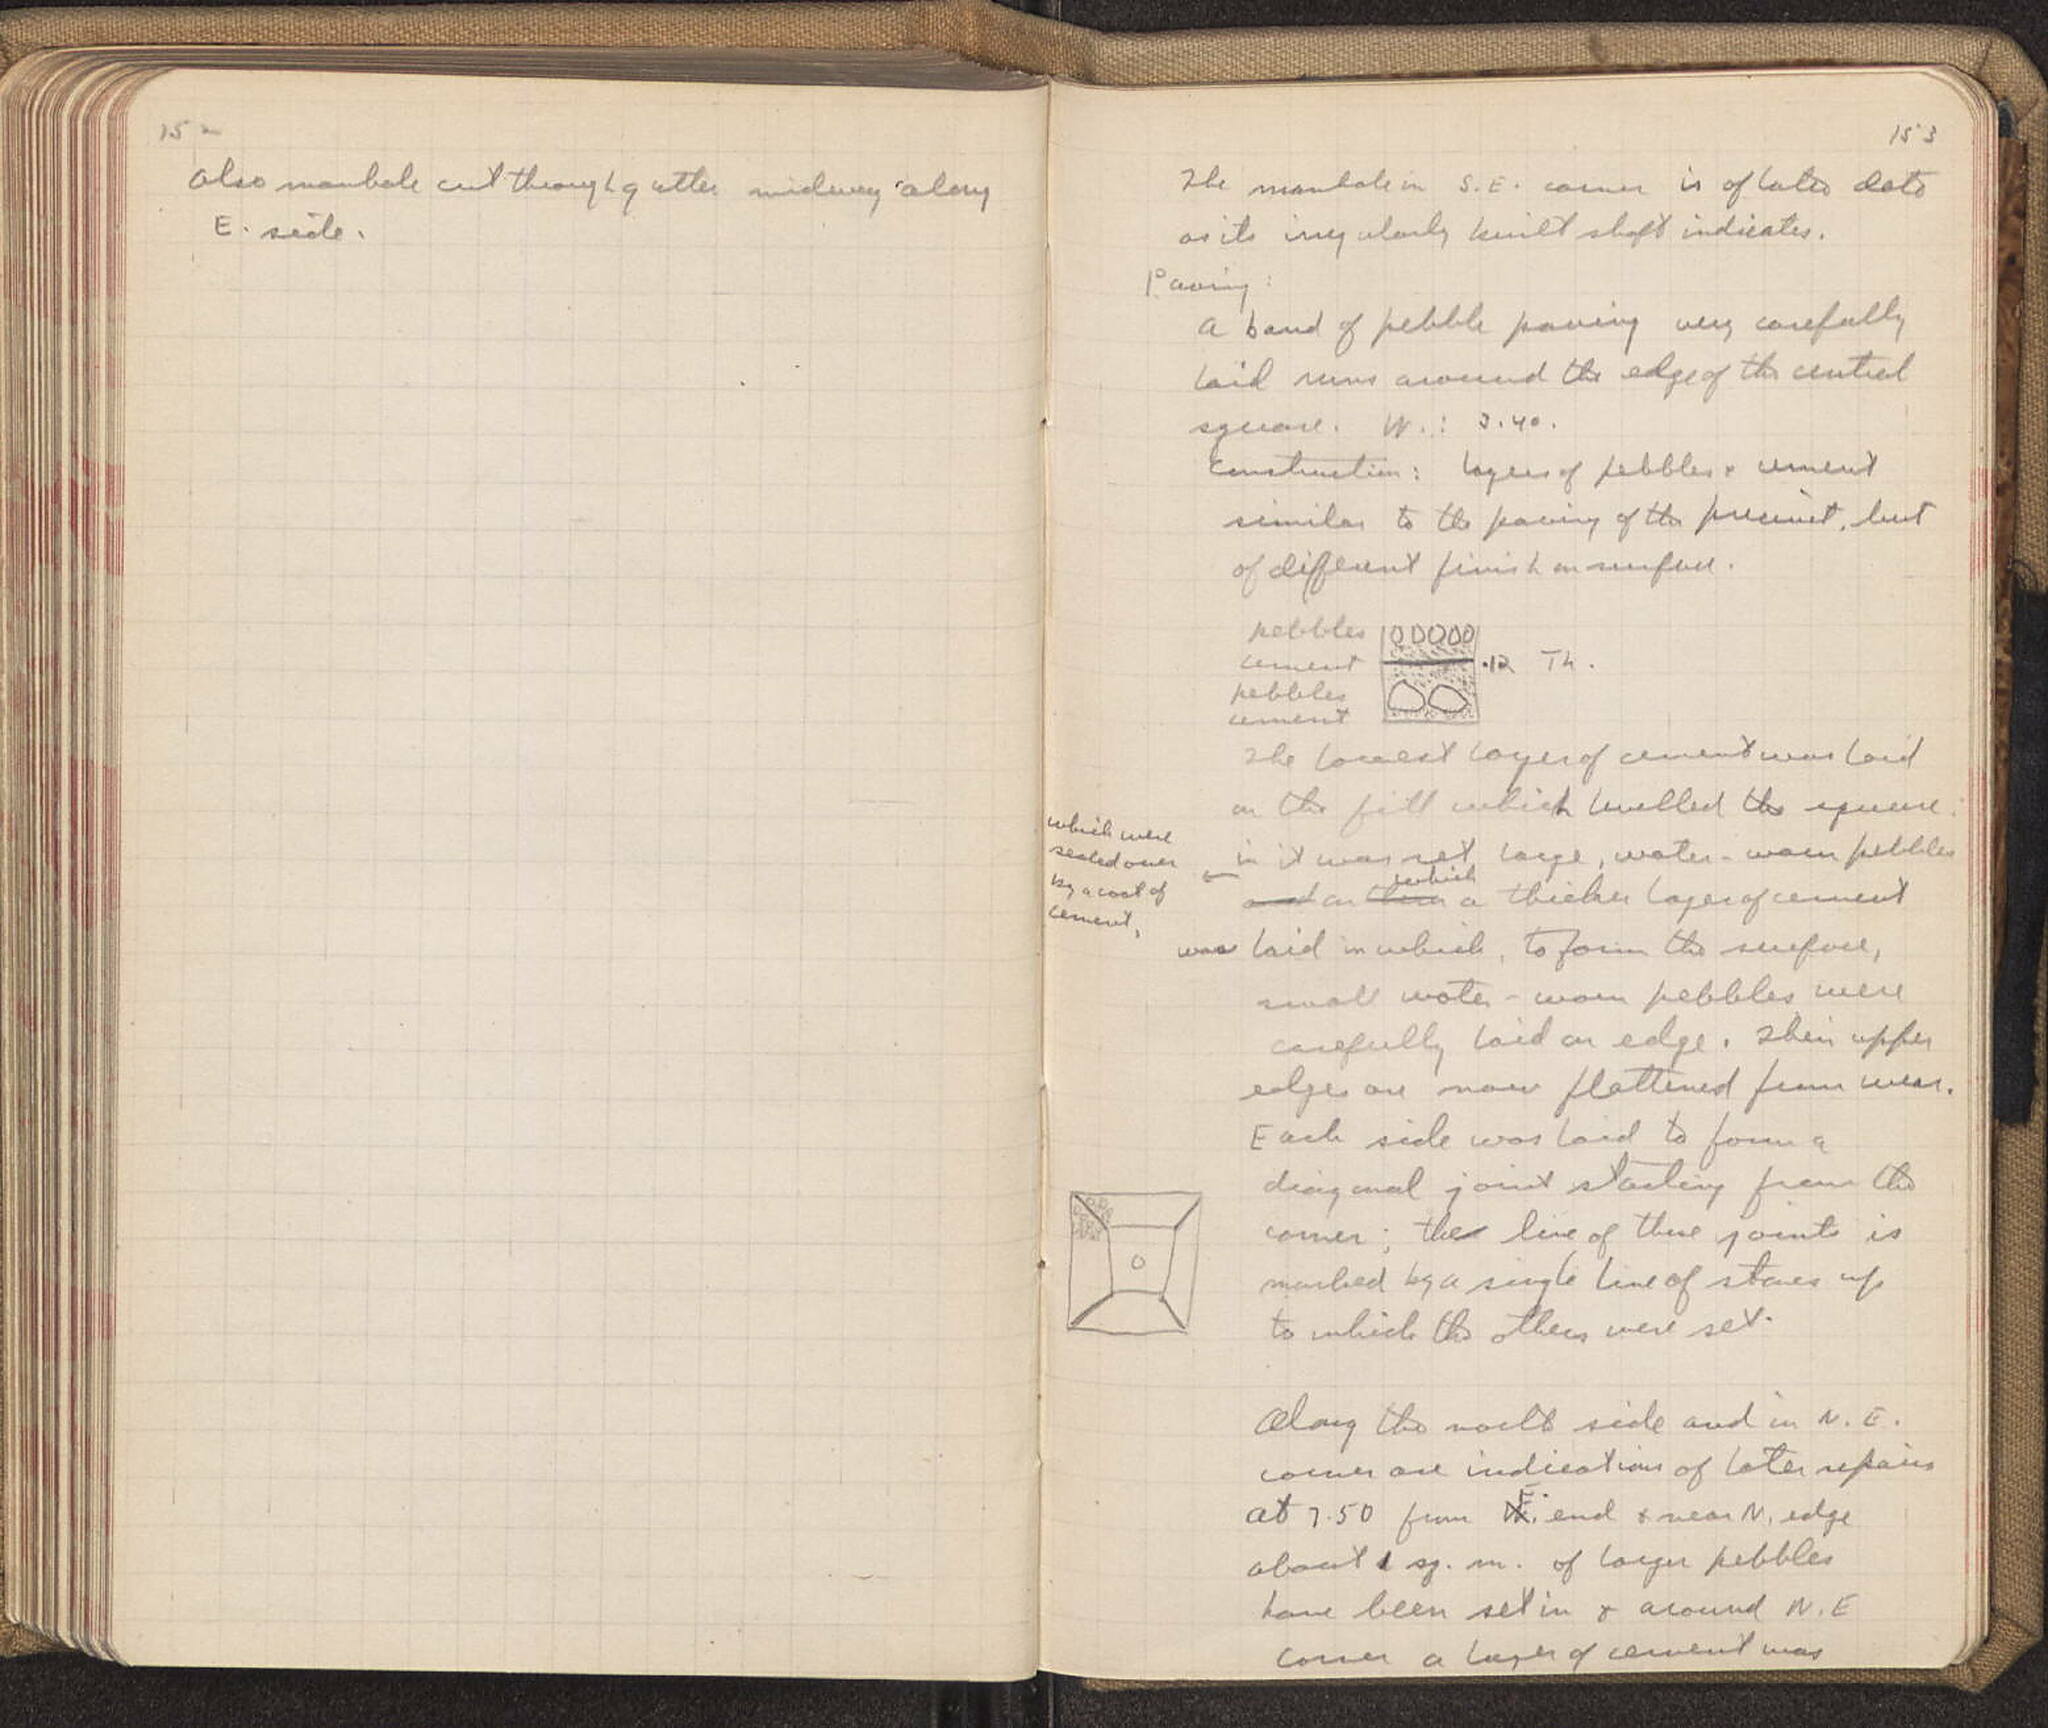 152
Also manhole cut through gutter midway along
E. side.
153
The manhole in S.E. corner is of later date
as its irregularly built shaft indicates.
Paving:
A band of pebble paving very carefully
laid runs around the edge of the central
square. W.: 3.40.
Construction: layers of pebbles & cement
similar to the paving of the precinct, but
of different finish on surface.
pebbles
cement .12 Th.
pebbles
cement
The lowest layer of cement was laid
on the fill which levelled the square:
in it was set large, water-worn pebbles
which were
sealed over
by a coat of
cement,
and on them which a thicker layer of cement
was laid in which, to form the surface,
small water-worn pebbles were
carefully laid on edge. Their upper
edges are now flattened from wear.
Each side was laid to form a
diagonal joint starting from the
corner; the line of these joints is
marked by a single line of stones up
to which the others were set.
Along the north side and in N.E.
corner are indications of later repairs
at 7.50 from E. end & near N. edge
about 1 sq. m. of larger pebbles
have been set in & around N.E
corner a layer of cement was